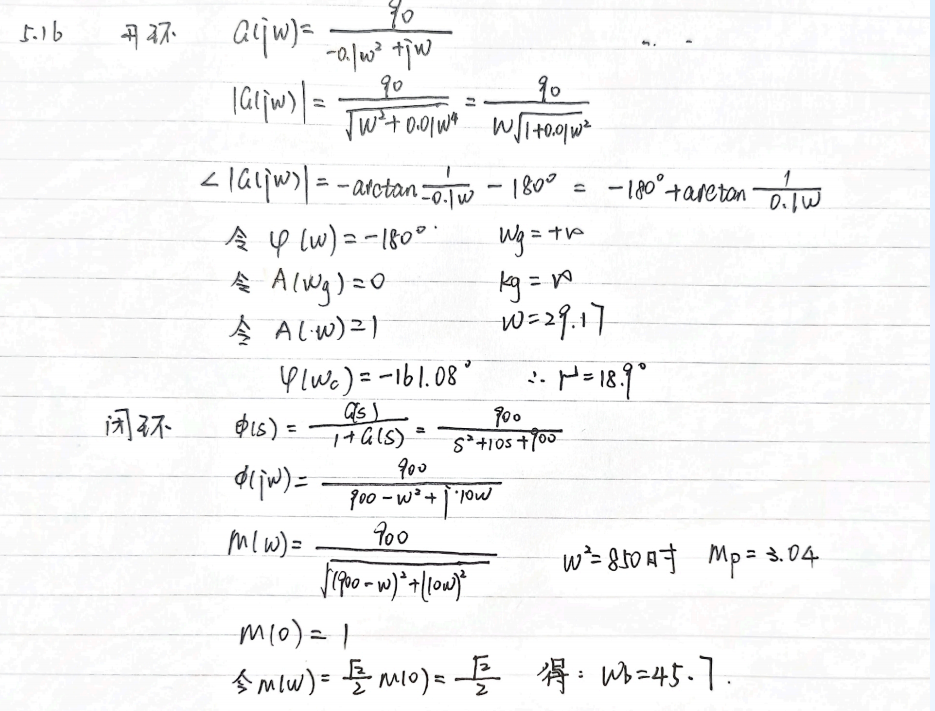 5.16 开环 G(jw)= 90/(-0.1w²+jw)
|G(jw)|= 90/√(w²+0.01w⁴) = 90/(w√(1+0.01w²))
∠|G(jw)|=-arctan 1/(-0.1w) - 180° = -180°+arctan 1/(0.1w)
令 φ(w)=-180° wg=+∞
令 A(wg)=0 kg=∞
令 A(w)=1 w=29.17
φ(wc)=-161.08° ∴ r=18.9°
闭环 φ(s)= G(s)/(1+G(s)) = 900/(s²+10s+900)
φ(jw)= 900/(900-w²+j·10w)
M(w)= 900/√((900-w)²+(10w)²) w²=850时 Mp=3.04
M(0)=1
令M(w)= √2/2 M(0)= √2/2 得：wb=45.7.